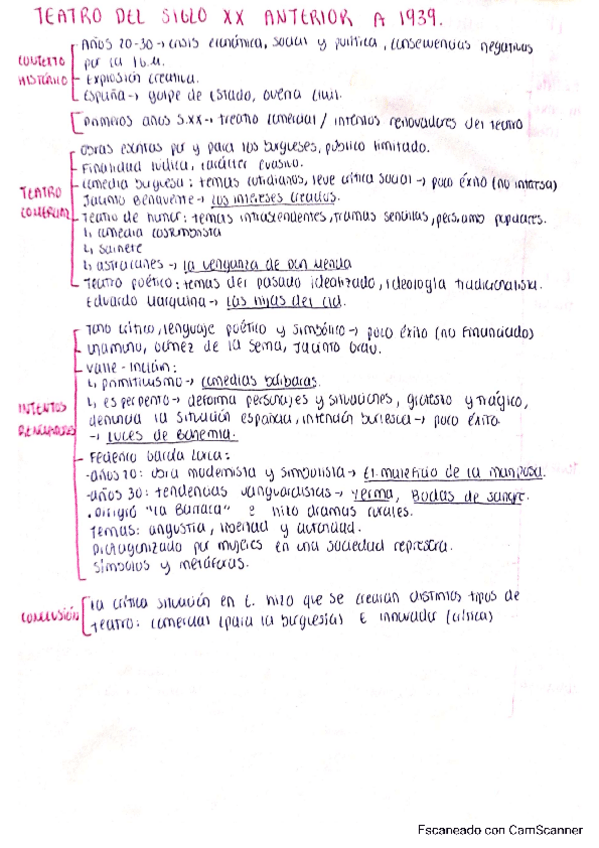 TEATRO DEL SIGLO XX ANTERIOR A 1939.
CONTEXTO HISTÓRICO
Años 20-30 → crisis económica, social y política, consecuencias negativas
por la I G.M.
Explosión creativa.
España → golpe de Estado, Guerra Civil.
Primeros años S.XX → teatro comercial / intentos renovadores del teatro
TEATRO COMERCIAL
Obras escritas por y para los burgueses, público limitado.
Finalidad lúdica, carácter evasivo.
Comedia burguesa: temas cotidianos, leve crítica social → poco éxito (no interesa)
Jacinto Benavente → Los intereses creados.
Teatro de humor: temas intrascendentes, tramas sencillas, persj. populares.
↳ comedia costumbrista
↳ sainete
↳ astracanes → La venganza de Don Mendo
Teatro poético: temas del pasado idealizado, ideología tradicionalista.
Eduardo Marquina → Las hijas del Cid.
INTENTOS RENOVADORES
Tono crítico, lenguaje poético y simbólico → poco éxito (no financiados)
Unamuno, Gómez de la Serna, Jacinto Grau.
Valle-Inclán:
↳ primitivismo → Comedias bárbaras.
↳ esperpento → deforma personajes y situaciones, grotesco y trágico,
denuncia la situación española, intención burlesca → poco éxito
→ Luces de Bohemia.
Federico García Lorca:
-años 20: obra modernista y simbolista → El maleficio de la mariposa.
-años 30: tendencias vanguardistas → Yerma, Bodas de sangre.
. Dirigió "La Barraca" e hizo dramas rurales.
Temas: angustia, libertad y autoridad.
Protagonizado por mujeres en una sociedad represora.
Símbolos y metáforas.
CONCLUSIÓN
La crítica situación en E. hizo que se crearan distintos tipos de
teatro: comercial (para la burguesía) E innovador (crítica)
Escaneado con CamScanner